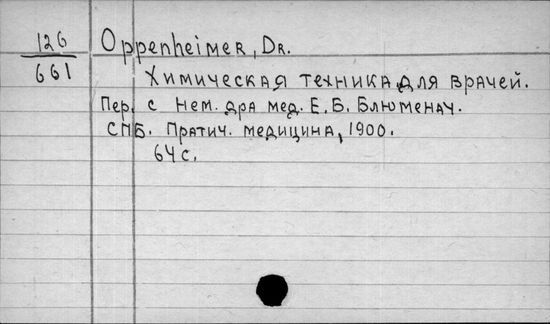 126
661
Oppenheimer, Dr.
Химическая техника для врачей.
Пер. с нем. дра мед. Е.Б. Блюменач.
СПБ. Пратич. медицина, 1900.
64 с.